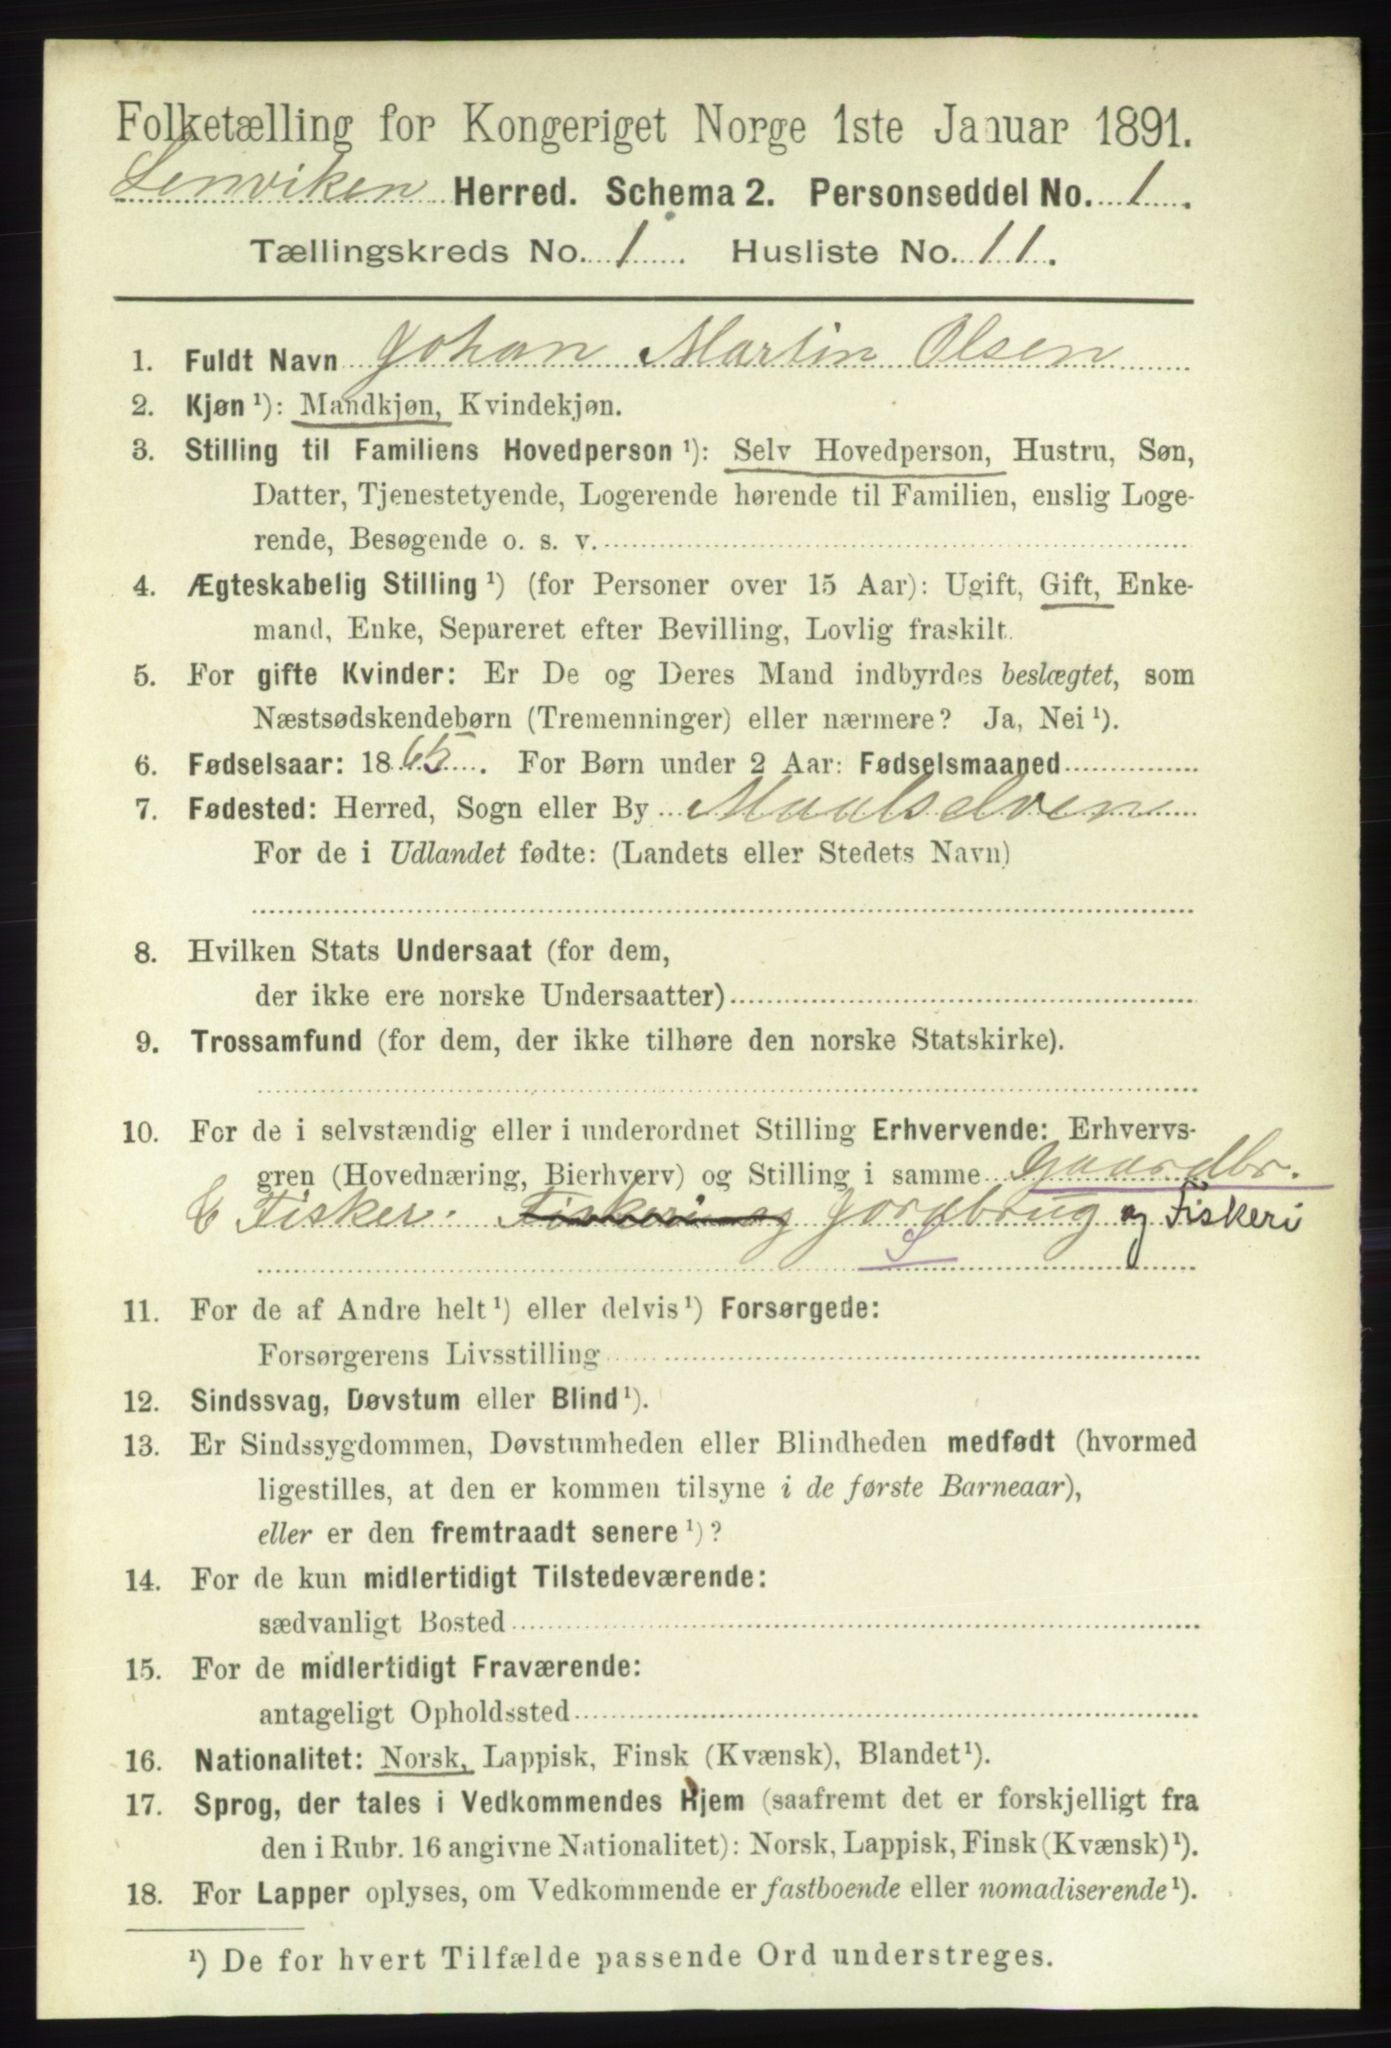 Folketælling for Kongeriget Norge 1ste Januar 1891.
Lenviken Herred. Schema 2. Personseddel No. 1.
Tællingskreds No. 1 Husliste No. 11.
1. Fuldt Navn Johan Martin Olsen
2. Kjøn¹): Mandkjøn, Kvindekjøn.
3. Stilling til Familiens Hovedperson¹): Selv Hovedperson, Hustru, Søn,
Datter, Tjenestetyende, Logerende hørende til Familien, enslig Loge-
rende, Besøgende o. s. v.
4. Ægteskabelig Stilling¹) (for Personer over 15 Aar): Ugift, Gift, Enke-
mand, Enke, Separeret efter Bevilling, Lovlig fraskilt.
5. For gifte Kvinder: Er De og Deres Mand indbyrdes beslægtet, som
Næstsødskendebørn (Tremenninger) eller nærmere? Ja, Nei¹).
6. Fødselsaar: 1865. For Børn under 2 Aar: Fødselsmaaned
7. Fødested: Herred, Sogn eller By Maalselven
For de i Udlandet fødte: (Landets eller Stedets Navn)
8. Hvilken Stats Undersaat (for dem,
der ikke ere norske Undersaatter)
9. Trossamfund (for dem, der ikke tilhøre den norske Statskirke).
10. For de i selvstændig eller i underordnet Stilling Erhvervende: Erhvervs-
gren (Hovednæring, Bierhverv) og Stilling i samme Gaardbr.
& Fisker. Fiskeri og Jordbrug og Fiskeri
S
11. For de af Andre helt¹) eller delvis¹) Forsørgede:
Forsørgerens Livsstilling
12. Sindssvag, Døvstum eller Blind¹).
13. Er Sindssygdommen, Døvstumheden eller Blindheden medfødt (hvormed
ligestilles, at den er kommen tilsyne i de første Barneaar),
eller er den fremtraadt senere¹)?
14. For de kun midlertidigt Tilstedeværende:
sædvanligt Bosted
15. For de midlertidigt Fraværende:
antageligt Opholdssted
16. Nationalitet: Norsk, Lappisk, Finsk (Kvænsk), Blandet¹).
17. Sprog, der tales i Vedkommendes Hjem (saafremt det er forskjelligt fra
den i Rubr. 16 angivne Nationalitet): Norsk, Lappisk, Finsk (Kvænsk)¹).
18. For Lapper oplyses, om Vedkommende er fastboende eller nomadiserende¹).
¹) De for hvert Tilfælde passende Ord understreges.